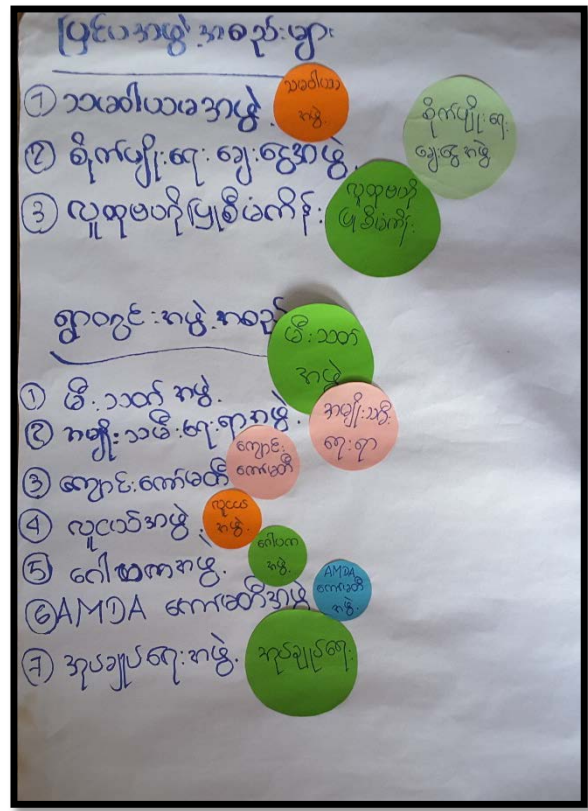 ပြင်ပအဖွဲ့အစည်းများ
① သမဝါယမအဖွဲ့
သမဝါယမ
အဖွဲ့
② စိုက်ပျိုးရေးချေးငွေအဖွဲ့
စိုက်ပျိုးရေး
ချေးငွေအဖွဲ့
③ လူထုဗဟိုပြုစီမံကိန်း
လူထုဗဟို
ပြုစီမံကိန်း
ရွာတွင်းအဖွဲ့အစည်း
① မီးသတ်အဖွဲ့
မီးသတ်
အဖွဲ့
② အမျိုးသမီးရေးရာအဖွဲ့
အမျိုးသမီး
ရေးရာ
③ ကျောင်းကော်မတီ
ကျောင်း
ကော်မတီ
④ လူငယ်အဖွဲ့
လူငယ်
အဖွဲ့
⑤ ဂေါပကအဖွဲ့
ဂေါပက
အဖွဲ့
⑥ AMDA ကော်မတီအဖွဲ့
AMDA
ကော်မတီ
အဖွဲ့
⑦ အုပ်ချုပ်ရေးအဖွဲ့
အုပ်ချုပ်ရေး